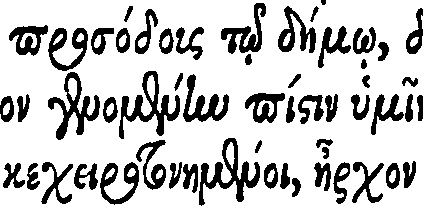 προσόδοις τῷ δήμῳ, δ
ον γενομένην πίστιν ὑμῖν
κεχειροτονημένοι, ἦρχον